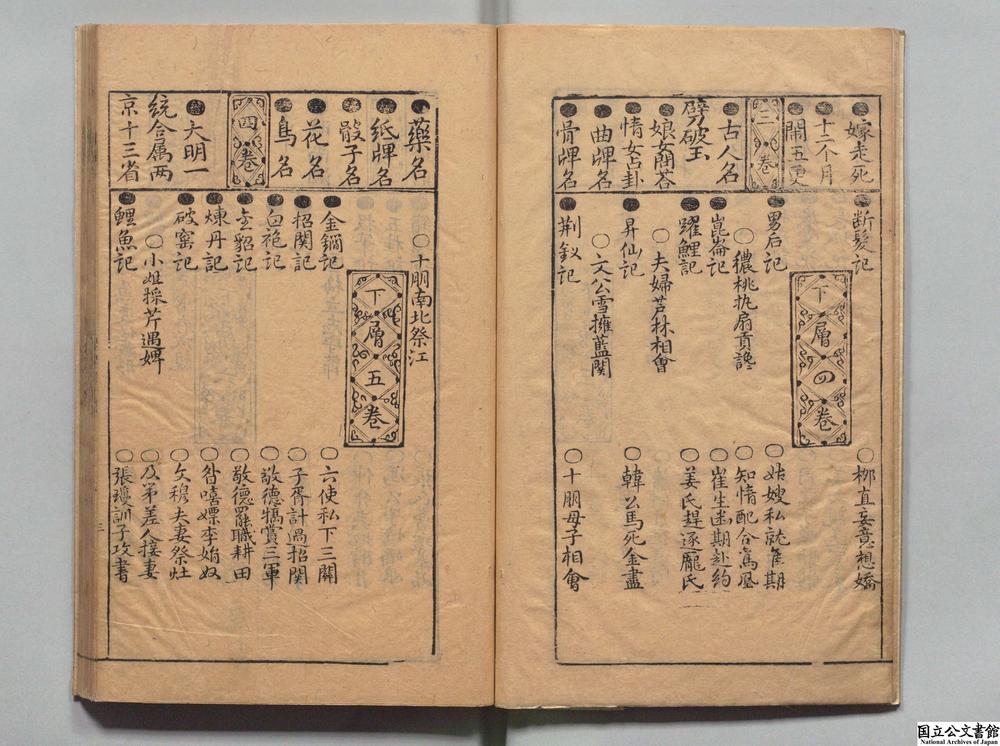 嫁走死
十二个月
鬧五更
三卷
古人名
劈破玉
娘女問答
情女占卦
曲牌名
骨牌名
斷髮記
○柳直妄意想嬌
下層四卷
男后記
○姑嫂私就隹期
○穠桃执扇貢讒
○知情配合鸞凰
崑崙記
○崔生迷期赴約
躍鯉記
○姜氏趕逐龐氏
○夫婦芦林相會
昇仙記
○韓公馬死金盡
○文公雪擁藍関
荆釵記
○十朋母子相會
藥名
紙牌名
骰子名
花名
鳥名
四卷
大明一
統合属两
京十三省
○十朋南北祭江
下層五卷
金鐧記
○六使私下三關
招関記
○子胥計過招関
白袍記
○敬德犒賞三軍
金貂記
○敬德罷職耕田
煉丹記
○嘻嫖李娟奴
破窰記
○文穆夫妻祭灶
○小姐採芹遇婢
○及第差人接妻
鯉魚記
○張瓊訓子攻書
三
国立公文書館
National Archives of Japan